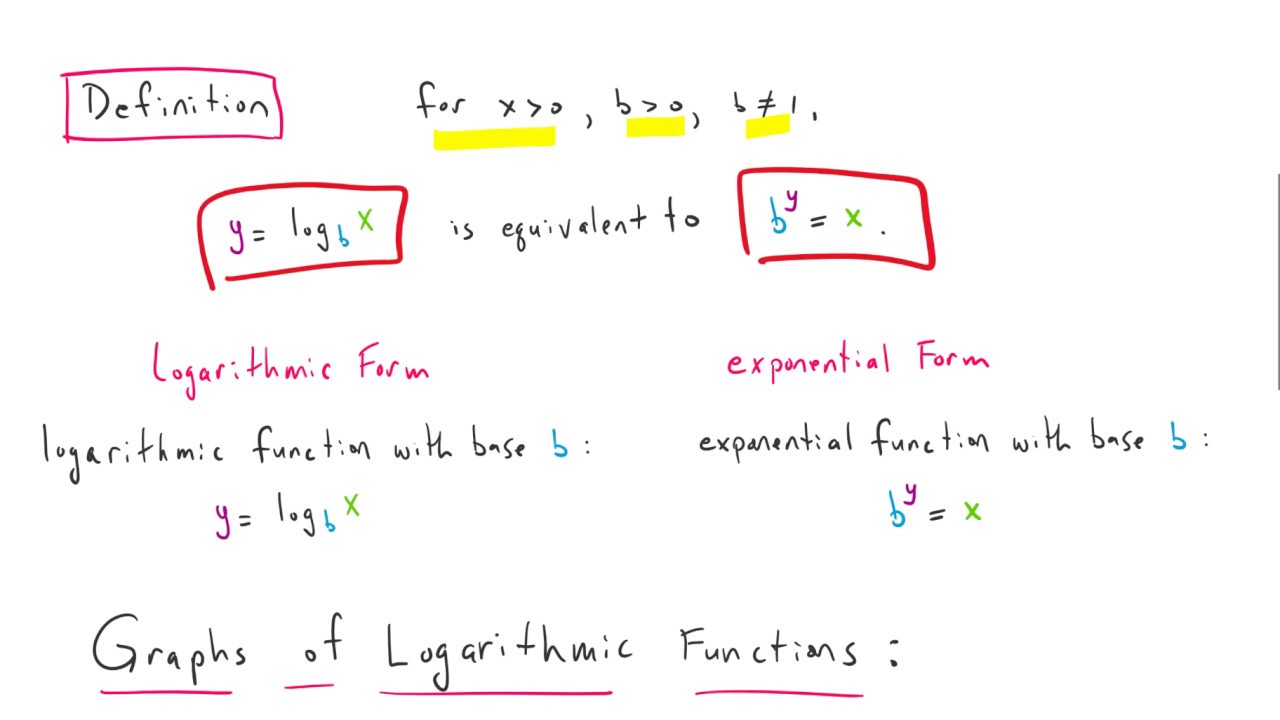 Definition for x > 0, b > 0, b ≠ 1.
y = log_b x is equivalent to b^y = x.
Logarithmic Form exponential Form
logarithmic function with base b: exponential function with base b:
y = log_b x b^y = x
Graphs of Logarithmic Functions: